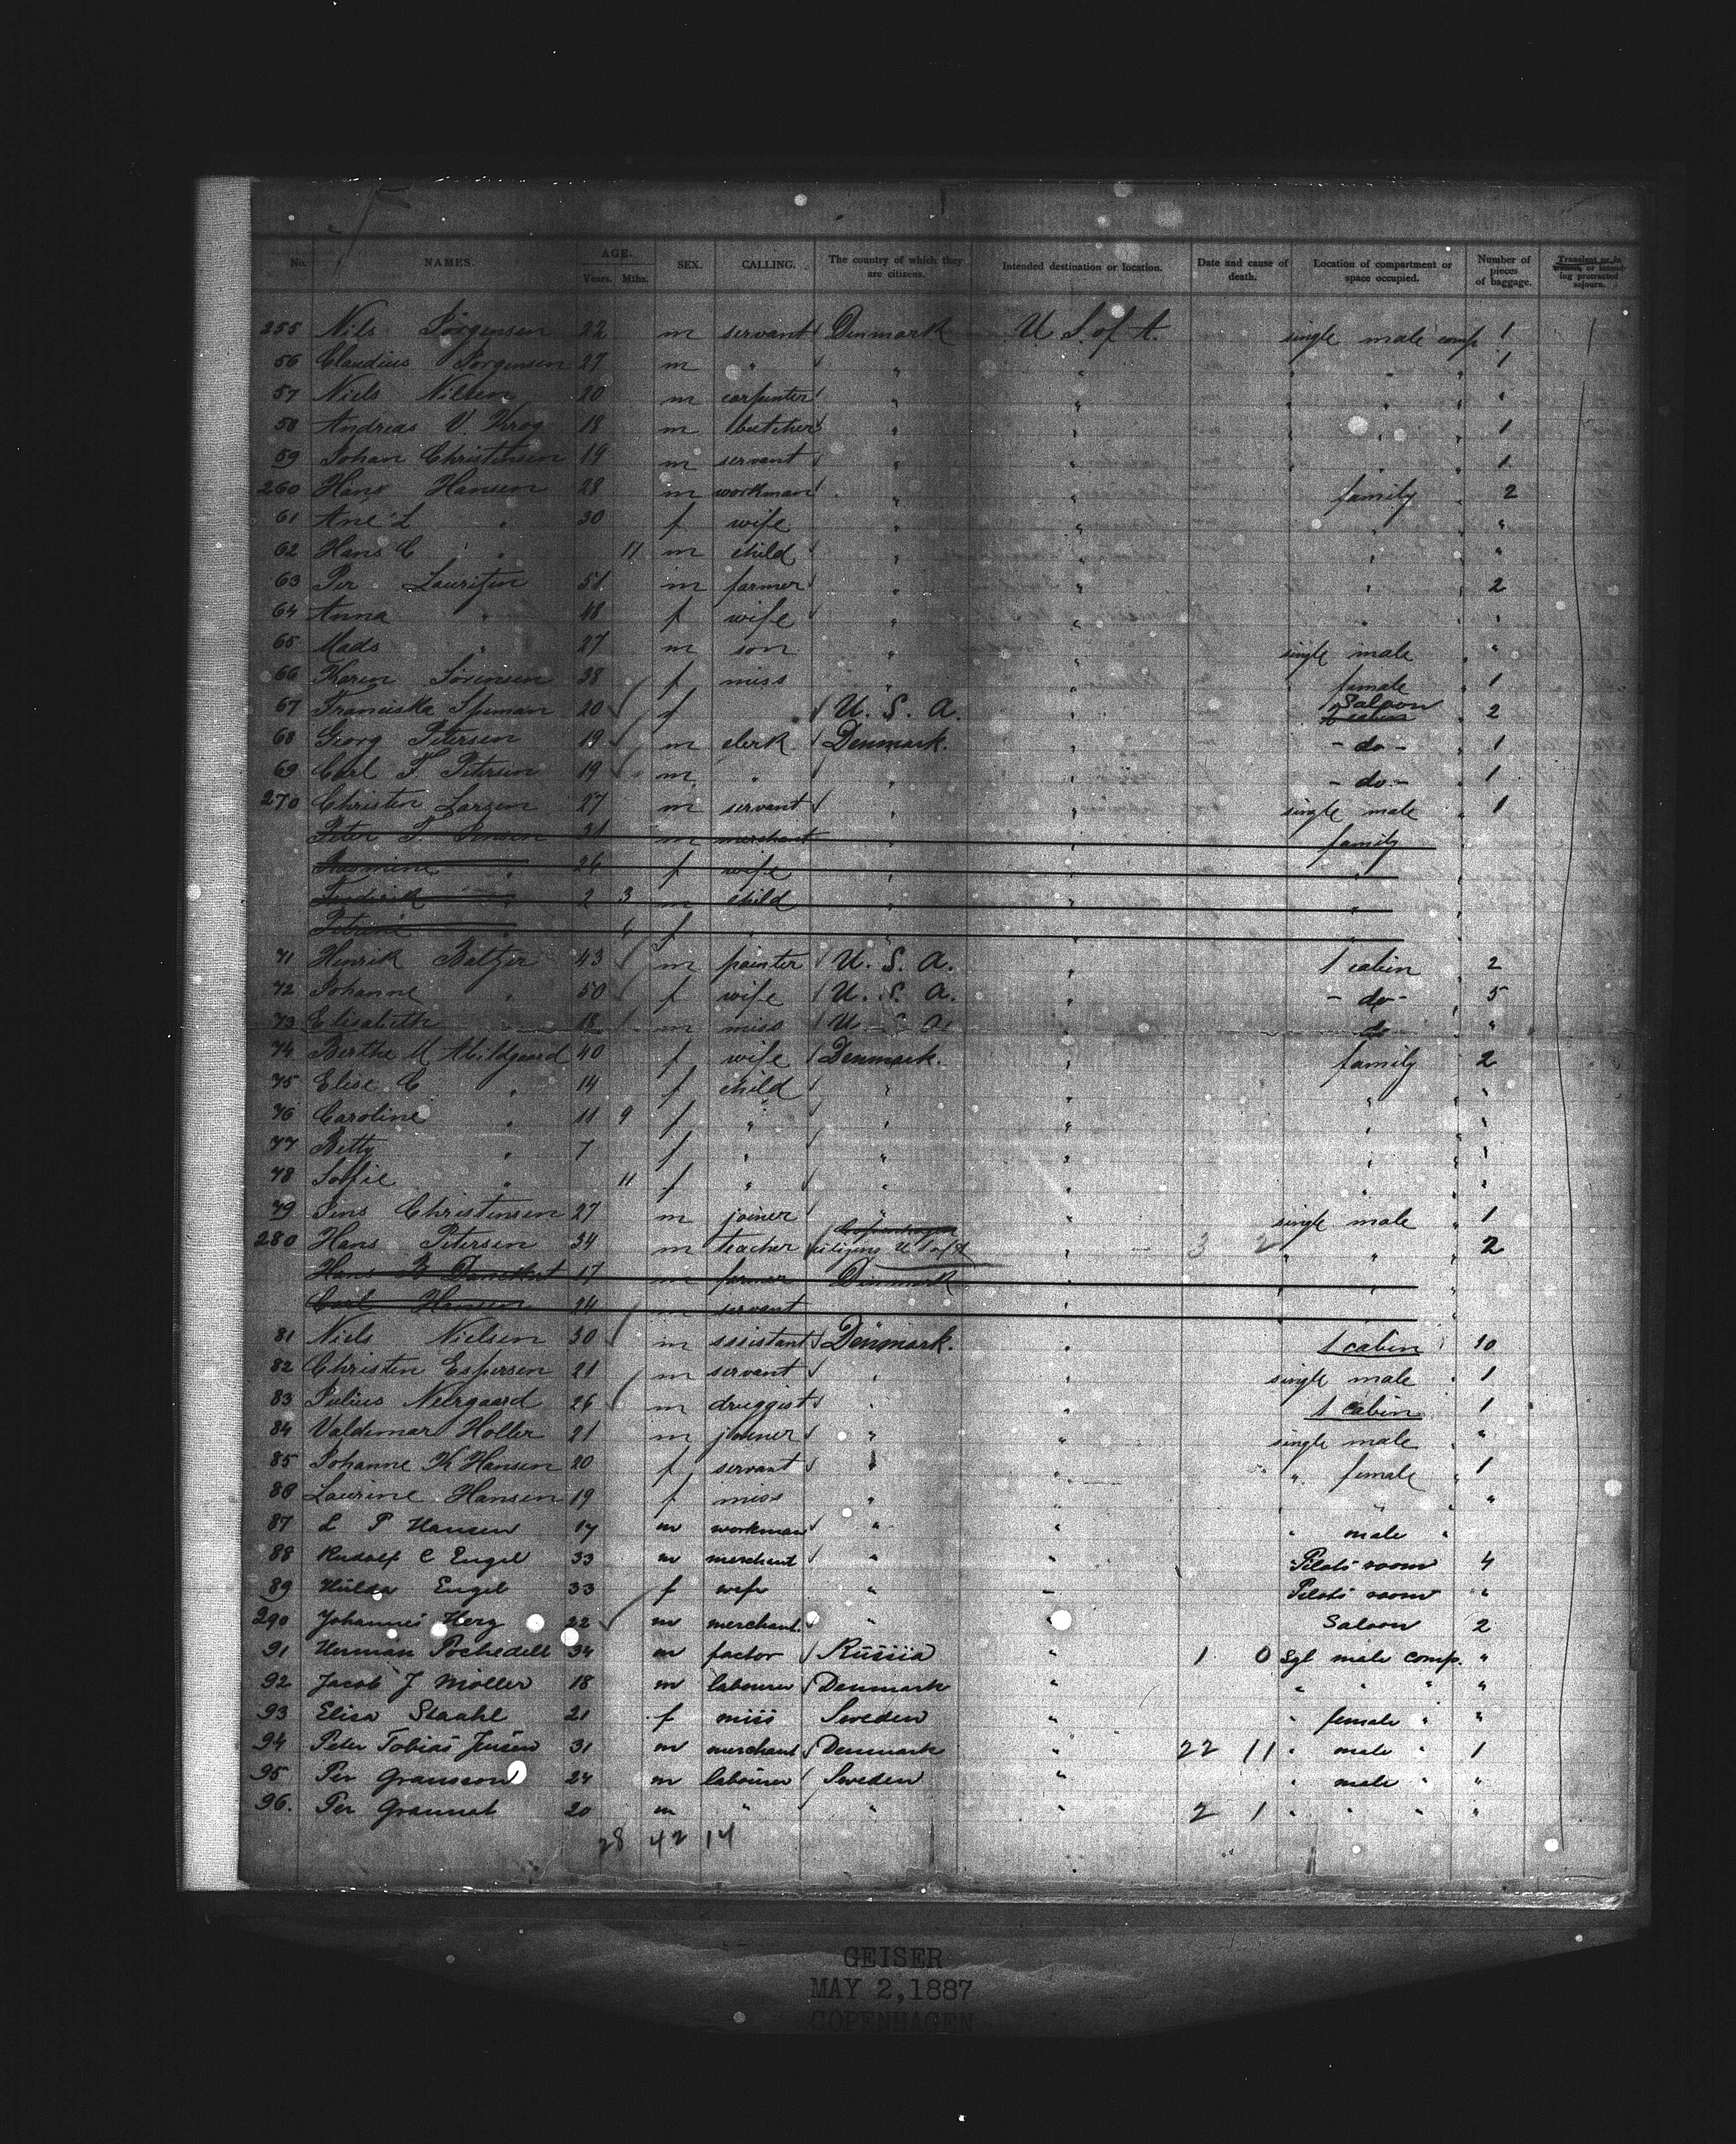 No. NAMES. AGE. Years. Mths. SEX. CALLING. The country of which they are citizens. Intended destination or location. Date and cause of death. Location of compartment or space occupied. Number of pieces of baggage. Transient or in transit, or intending protracted sojourn.
255 Nils Jörgensen 22 m servant Denmark U S. of A. single male comp 1
56 Claudius Jörgensen 27 m " " " " " " 1
57 Niels Nilsen 20 m carpenter " " " " " "
58 Andreas V. Krog 18 m butcher " " " " " 1
59 Johan Christensen 19 m servant " " " " " 1
260 Hans Hansen 28 m workman " " family " 2
61 Ane L " 30 f wife " " " " "
62 Hans C " 11 m child " " " " "
63 Per Lauritzen 51 m farmer " " " " 2
64 Anna " 48 f wife " " " " "
65 Mads " 27 m son " " single male " "
66 Karen Sörensen 38 f miss " " " female " 1
67 Franciska 20 f U. S. A. " 1 Saloon " 2
68 Georg Petersen 19 m clerk Denmark. " - do - " 1
69 Carl F. Petersen 19 m " " " - do - " 1
270 Christen Larsen 27 m servant " " single male " 1
Peter T. Jensen 31 m merchant " " family
Rasmine " 26 f wife " " " "
Fredrik " 2 3 m child " " " "
Petrine " 6 f " " " " "
71 Henrik Baltzer 43 m painter U. S. A. " 1 cabin 2
72 Johanne " 50 f wife U. S. A. " - do - " 5
73 Elisabeth " 18 m miss U S A. do "
74 Berthe M Abildgaard 40 f wife Denmark. " family 2
75 Elise C " 14 f child " " " "
76 Caroline " 11 9 f " " " " "
77 Betty " 7 f " " " " " "
78 Sofie " 11 f " " " " " "
79 Jens Christensen 27 m joiner " " single male " 1
280 Hans Petersen 34 m teacher citizens U S of A " 3 2 " " " 2
Hans 17 m farmer Denmark " " " "
Carl Hansen 24 m servant " " "
81 Niels Nielsen 30 m assistant Denmark. " 1 cabin 10
82 Christen Espersen 21 m servant " " single male " 1
83 Julius Neergaard 26 m druggist " " 1 cabin 1
84 Valdemar Holler 21 m joiner " " single male " "
85 Johanne K Hansen 20 f servant " " " female " 1
86 Laurine Hansen 19 f miss " " " " " "
87 L P Hansen 17 m workman " " " male "
88 Rudolf C Engel 33 m merchant " " Pilots room 4
89 Hulda Engel 33 f wife " " Pilots room "
290 Johannes Herz 22 m merchant. " " Saloon 2
91 Herman 34 m factor Russia " 1 0 Sgl male comp. "
92 Jacob J Möller 18 m labourer Denmark " " " " "
93 Elisa Staahl 21 f miss Sweden " " female " "
94 Peter Tobias Jensen 31 m merchant Denmark " 22 11 " male " 1
95 Per 24 m labourer Sweden " " male " "
96. Per Grannat 20 m " " " 2 1 " " " "
28 42 14
GEISER
MAY 2, 1887
COPENHAGEN